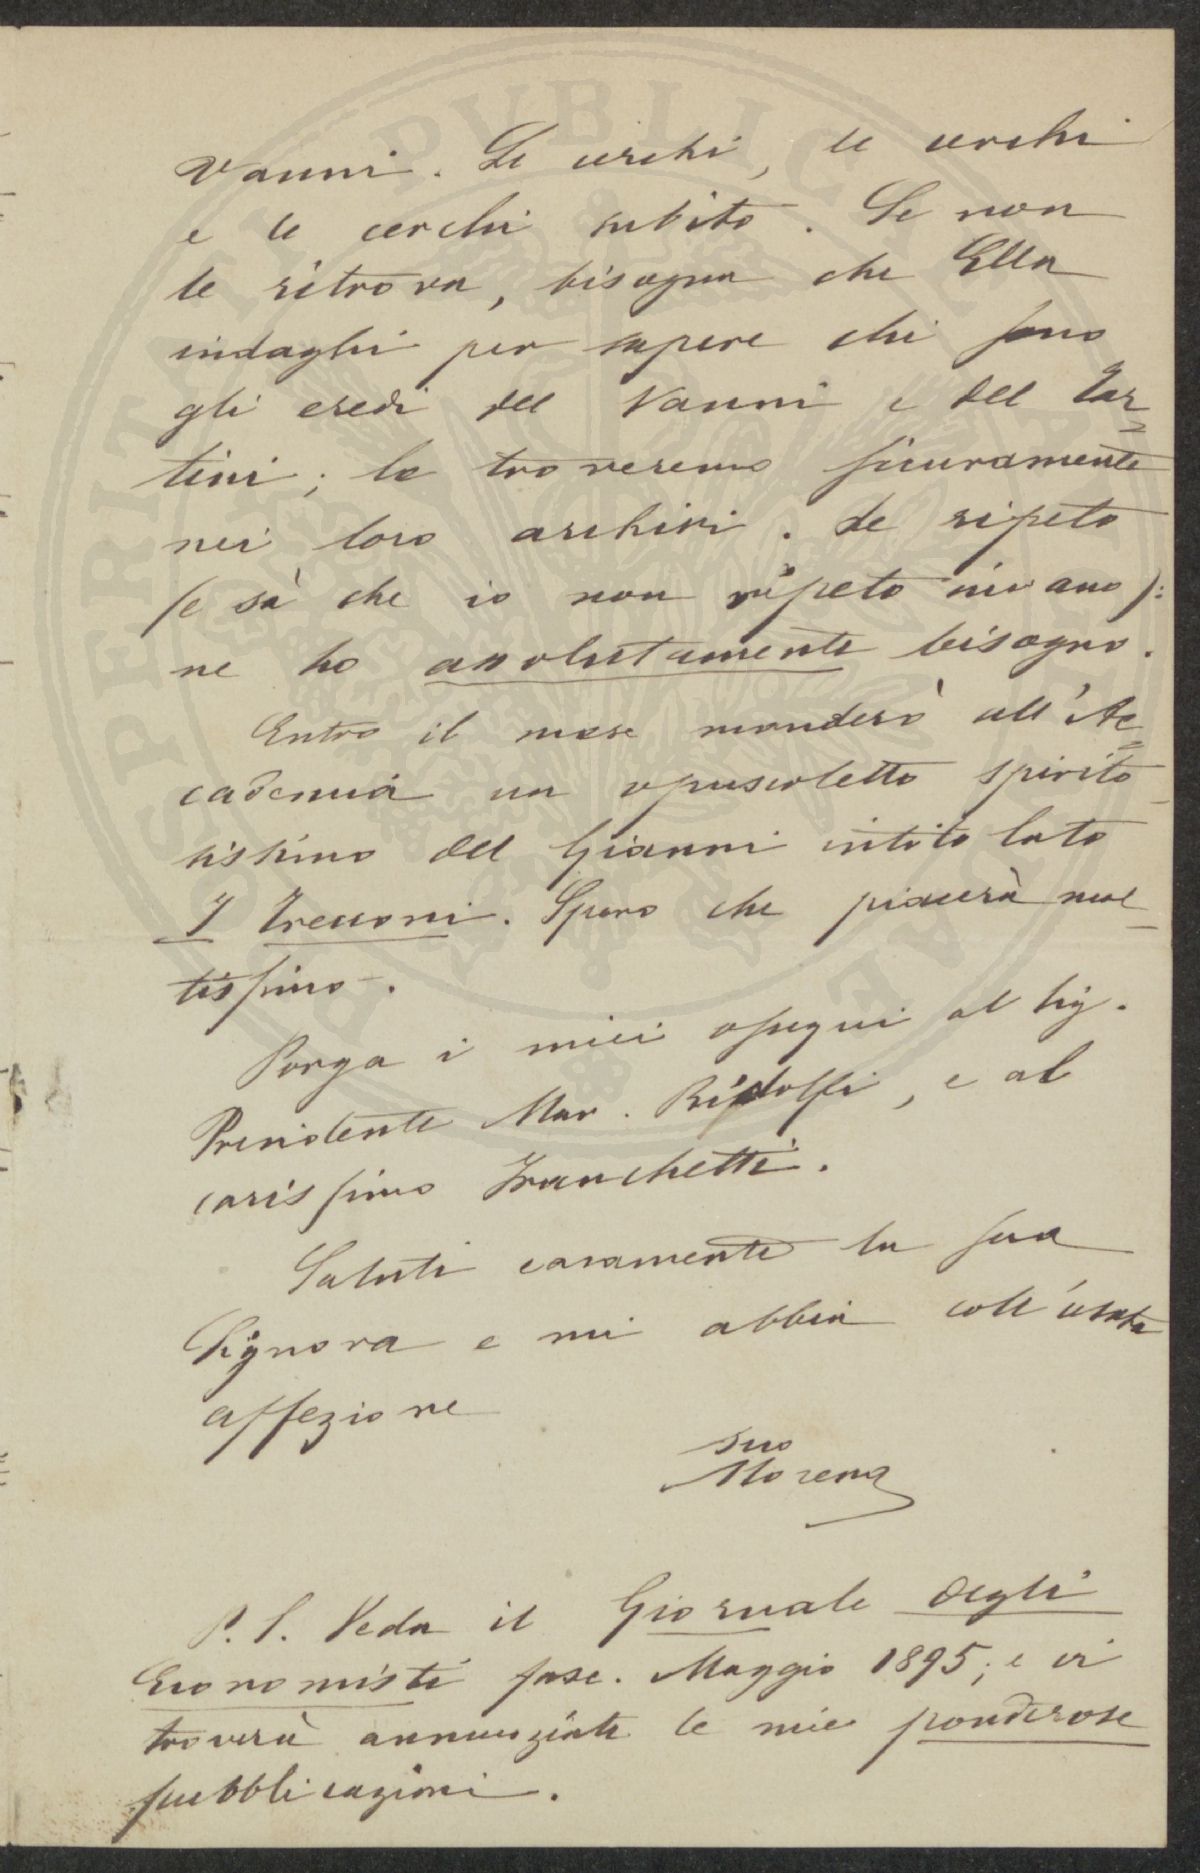 Vanni. Le cerchi, le cerchi
e le cerchi subito. Se non
le ritrova, bisogna che Ella
indaghi per sapere chi sono
gli eredi del Vanni e del Tar=
tini; le troveremo sicuramente
nei loro archivi. Le ripeto
(e sà che io non ripeto invano):
ne ho assolutamente bisogno.
Entro il mese manderò all'Ac=
cademia un opuscoletto spirito-
sissimo del Gianni intitolato
I Trecconi. Spero che piacerà mol-
tissimo.
Porga i miei ossequi al Sig.
Presidente Mar. Ridolfi, e al
carissimo Franchetti.
Saluti caramente la sua
Signora e mi abbia coll'usata
affezione
suo
Morena
P.S. Veda il Giornale degli
Economisti fasc. Maggio 1895; e vi
troverà annunziate le mie ponderose
pubblicazioni.
OSPERITATI PVBLICAE AVGE